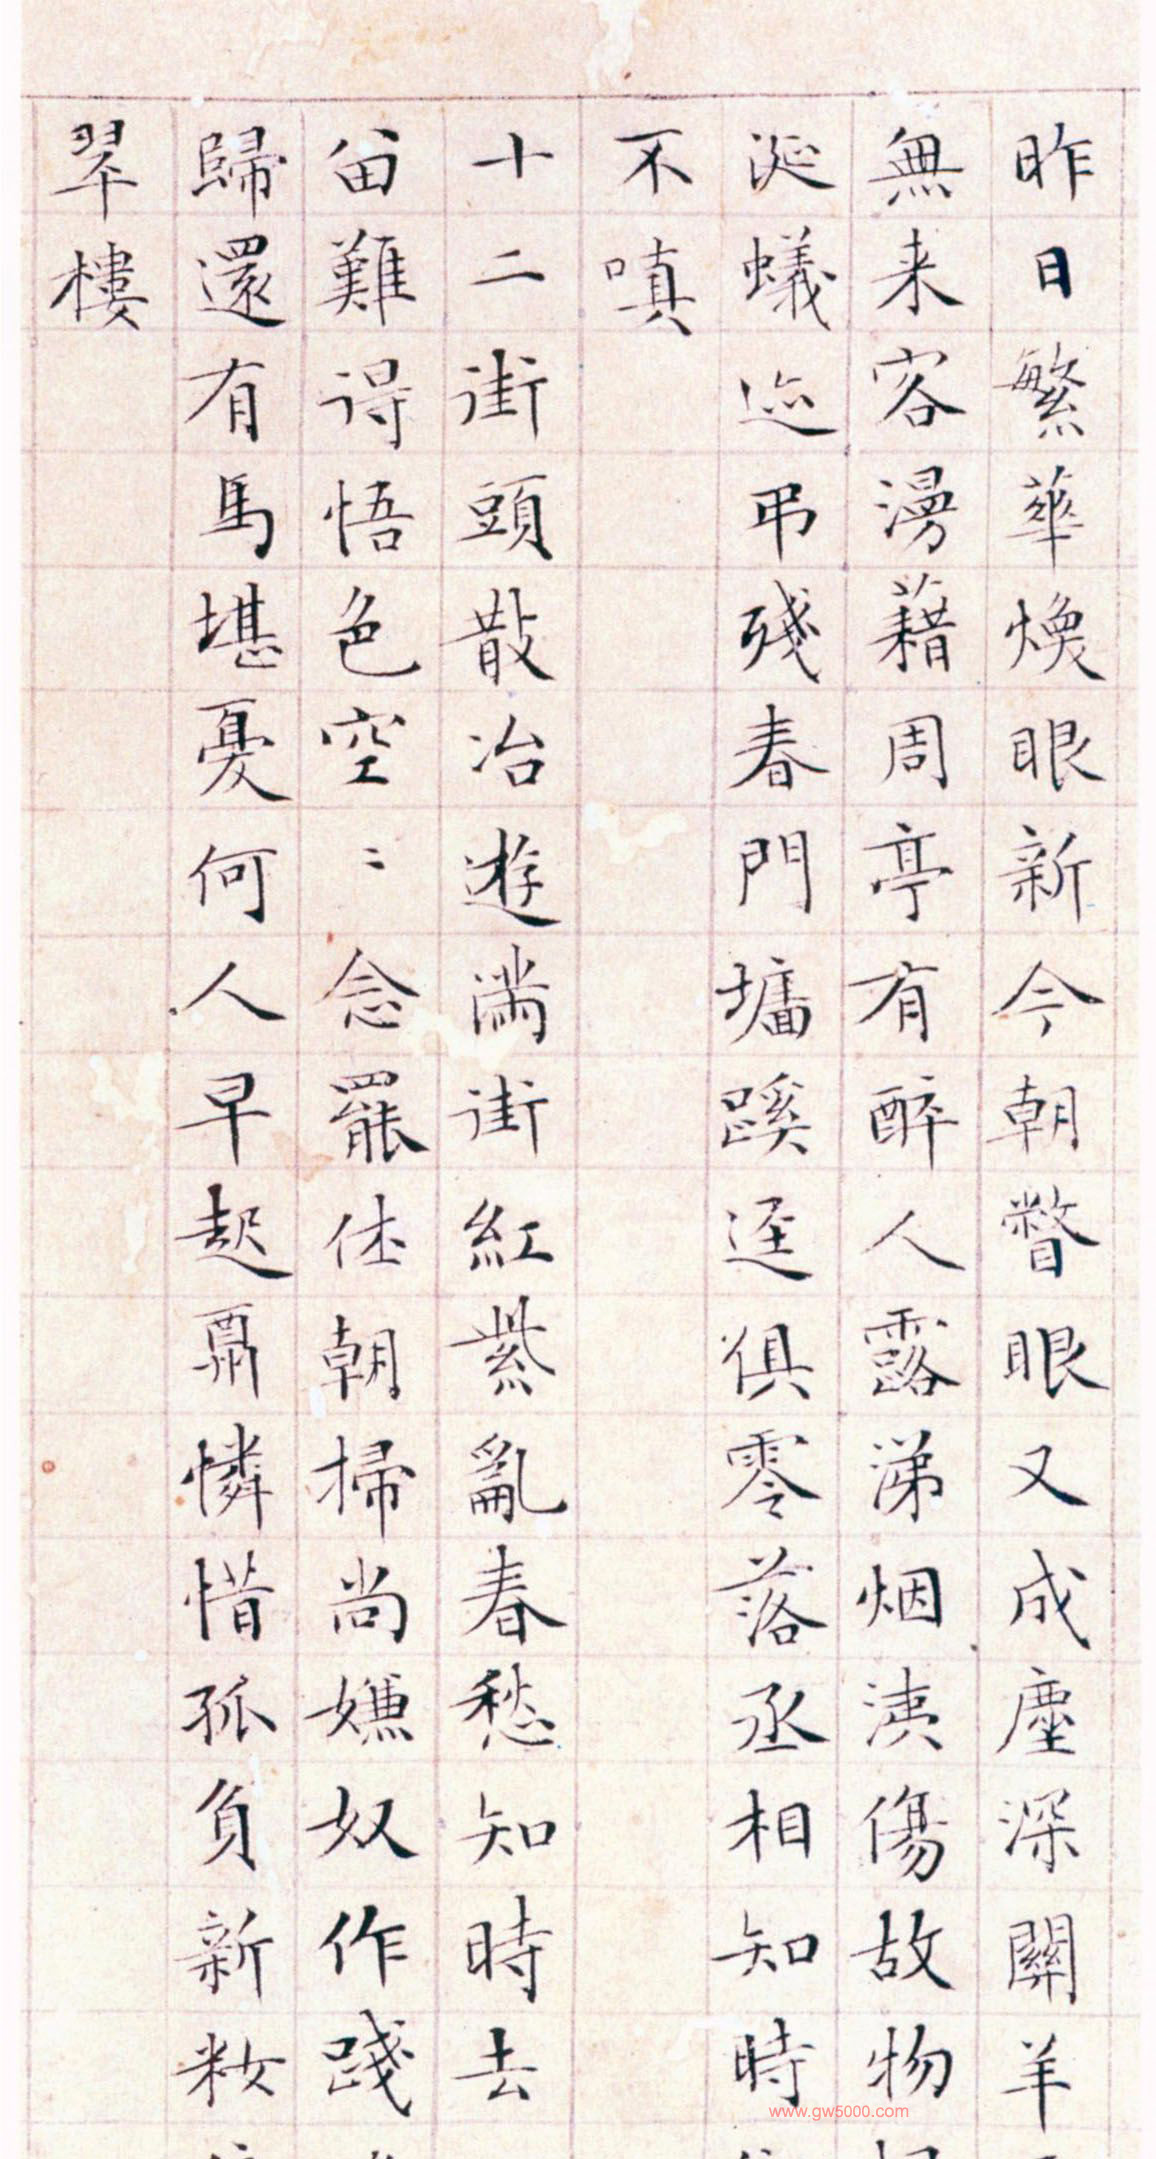 昨日繁華煥眼新今朝瞥眼又成塵深關羊
無来客漫藉周亭有醉人露涕烟洟傷故物
涎蟻迹弔殘春門墻蹊逕俱零落丞相知時
不嗔
十二街頭散冶遊滿街紅紫亂春愁知時去
畄難得悟色空〻念罷休朝掃尚嫌奴作踐
歸還有馬堪憂何人早起鬲憐惜孤負新妝
翠樓
www.gw5000.com